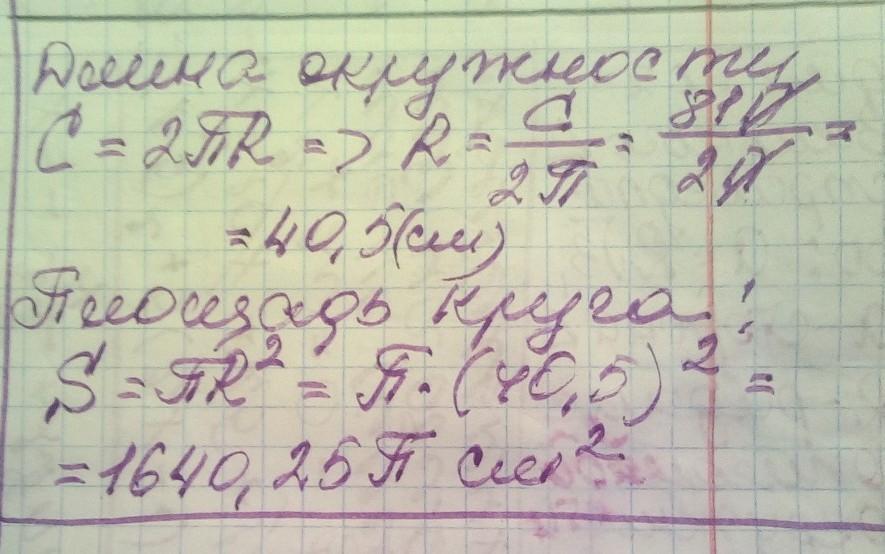 Длина окружности
C = 2πR => R = C/2π = 81π/2π =
= 40,5(см)
Площадь круга:
S = πR² = π·(40,5)² =
= 1640,25π см²